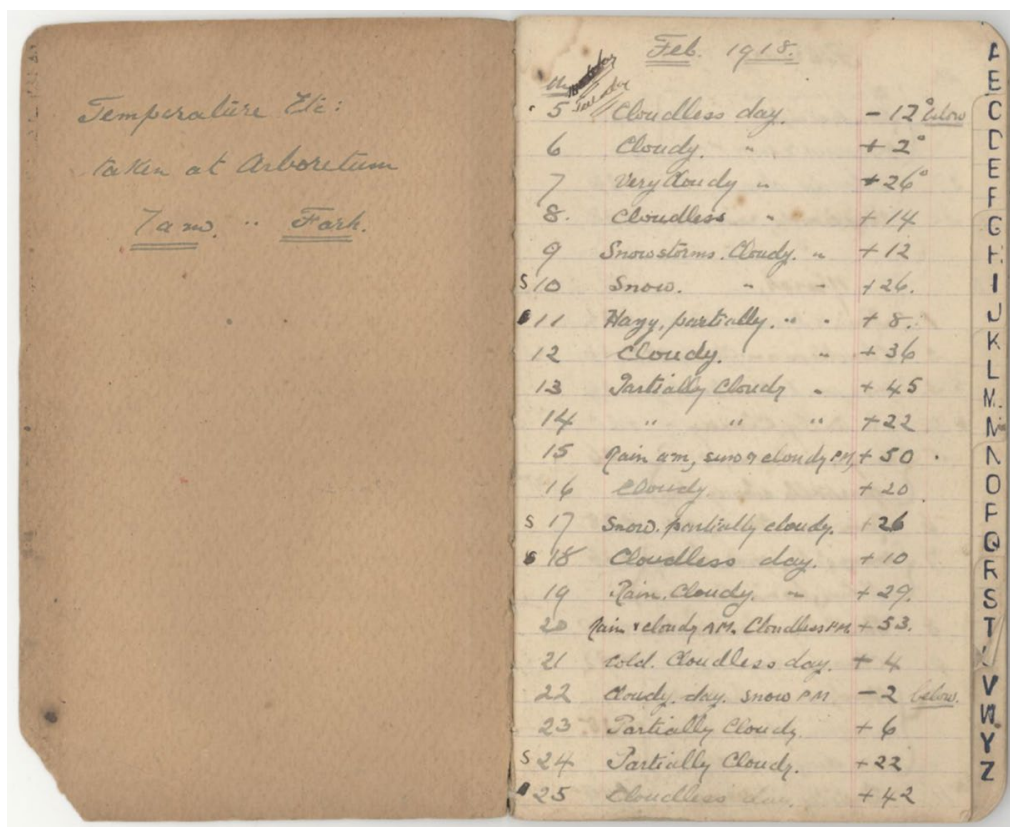 Temperature Etc:
taken at Arboretum
7 am. " Farh.
Feb. 1918.
Tuesday
5 Cloudless day. - 12° below
6 Cloudy. " + 2°
7 Very Cloudy " + 26°
8. Cloudless " + 14
9 Snowstorms. Cloudy. " + 12
S 10 Snow. " " + 26.
11 Hazy, partially. " " + 8.
12 Cloudy. " " + 36
13 Partially Cloudy " + 45
14 " " " + 22
15 Rain am, sun & cloudy PM, + 50
16 Cloudy + 20
S 17 Snow. partially cloudy. + 26
18 Cloudless day. + 10
19 Rain. Cloudy. " + 29.
20 Rain & cloudy AM. Cloudless PM. + 53.
21 Cold. Cloudless day. + 4
22 Cloudy. day. snow PM - 2 below.
23 Partially Cloudy. + 6
S 24 Partially Cloudy. + 22
25 Cloudless day. + 42
A
B
C
D
E
F
G
H
I
J
K
L
M
N
O
P
Q
R
S
T
V
W
Y
Z